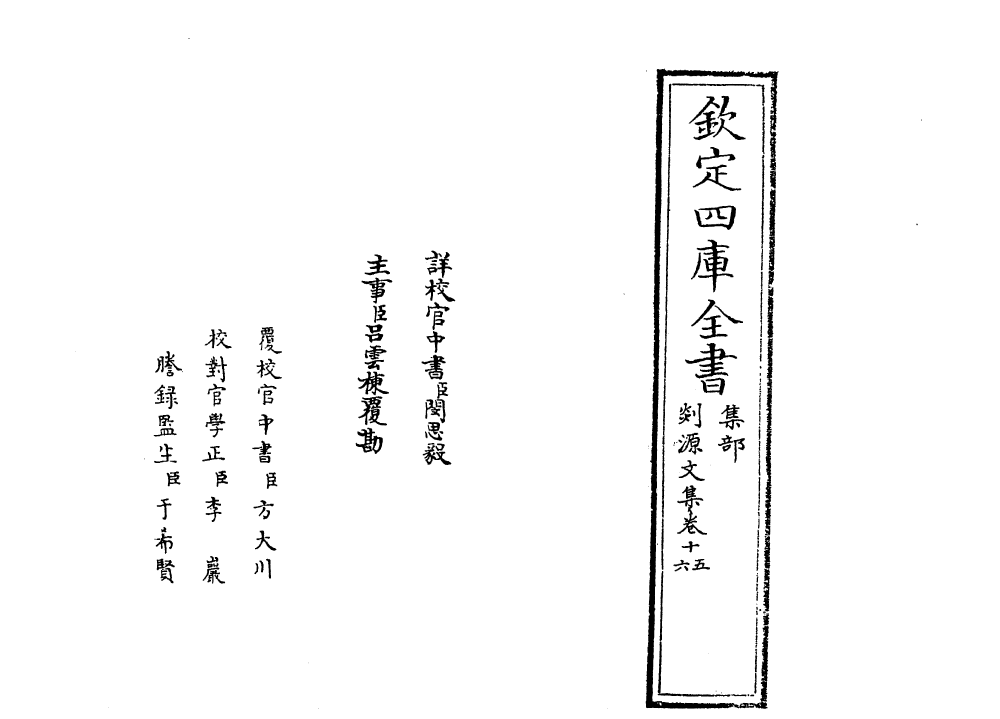 欽定四庫全書
集部
剡源文集卷十五
六
詳校官中書臣閔思毅
主事臣呂雲棟覆勘
覆校官中書臣方大川
校對官學正臣李巖
謄録監生臣于希賢